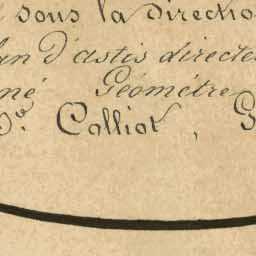 sous la directio
an d'astis directe
né Géomètre
Dr. Colliot, G